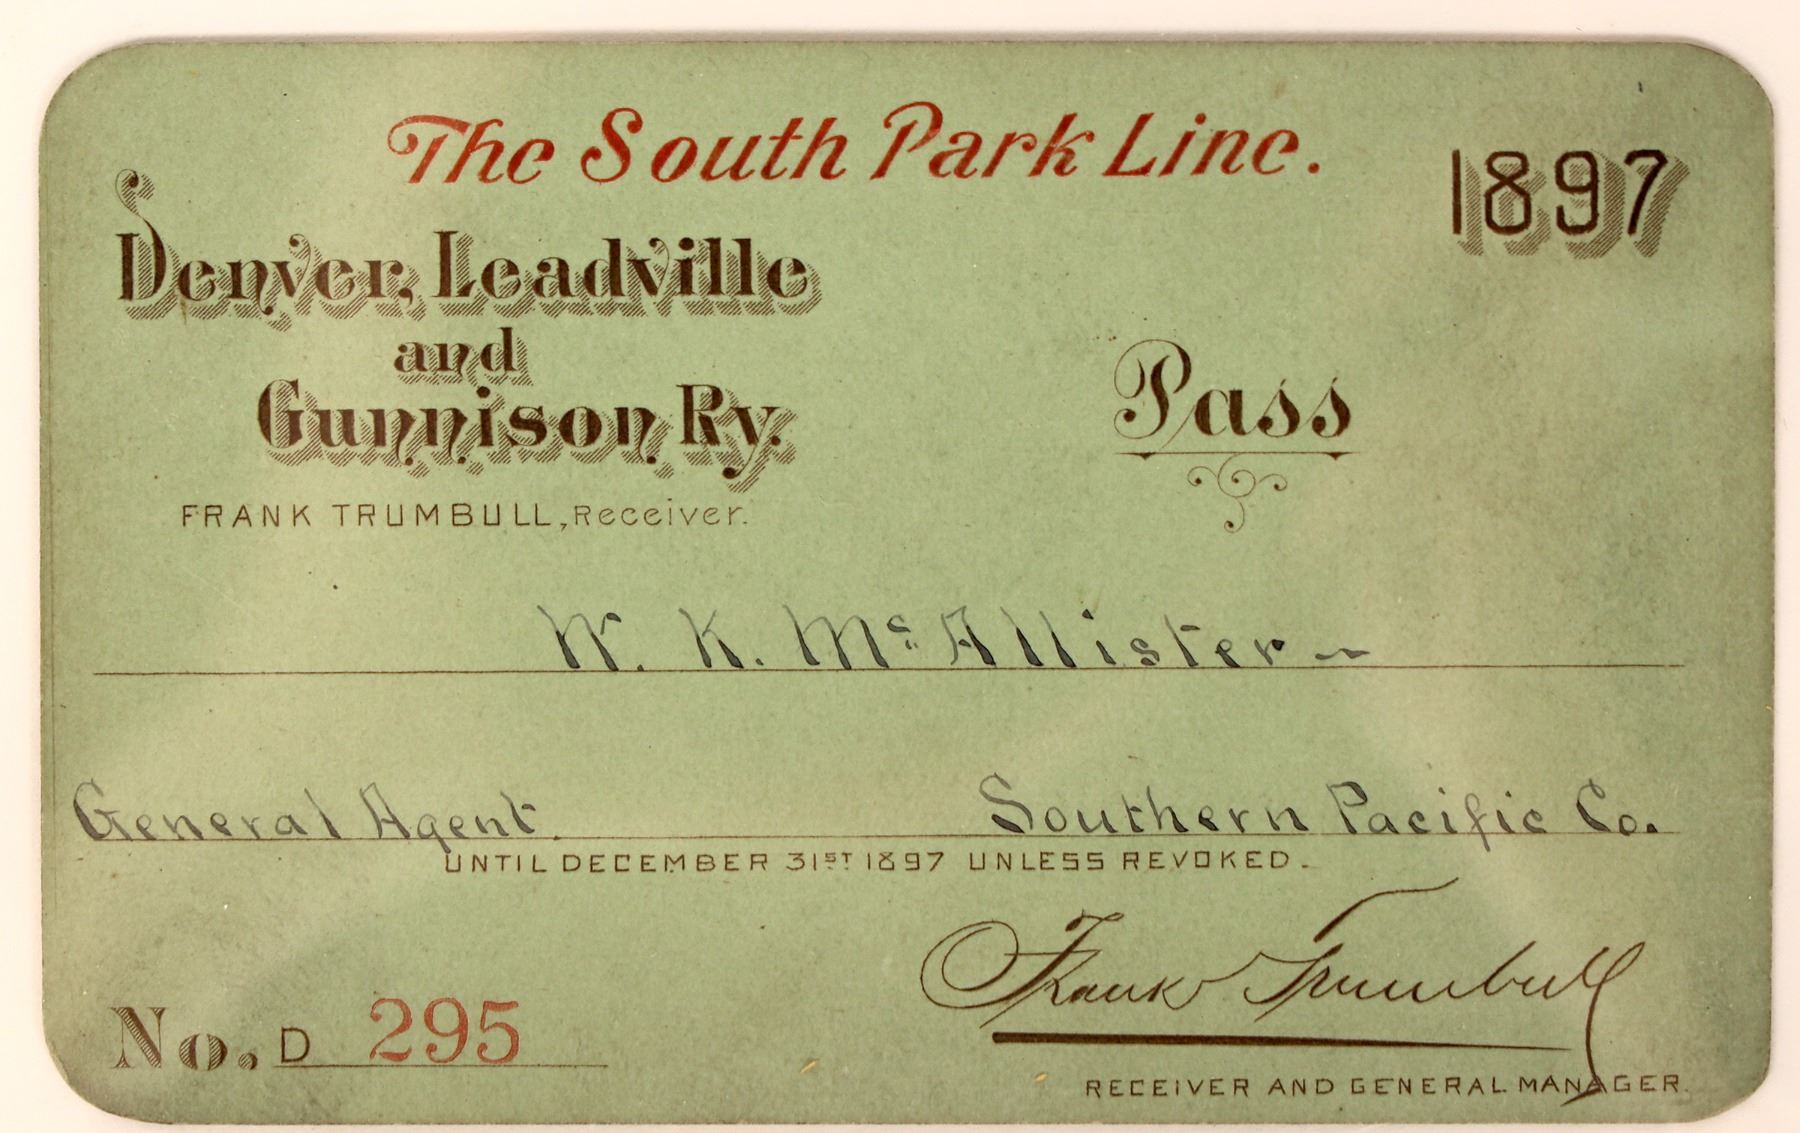 The South Park Line.
1897
Denver, Leadville
and
Gunnison Ry.
Pass
FRANK TRUMBULL, Receiver.
W. K. McAllister ~
General Agent. Southern Pacific Co.
UNTIL DECEMBER 31ST 1897 UNLESS REVOKED.
Frank Trumbull
No. D 295
RECEIVER AND GENERAL MANAGER.